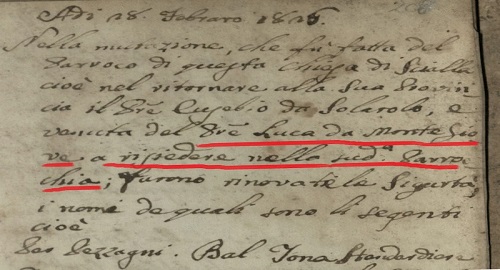 Adi 28. Febraro 1826.
Nella mutazione, che fù fatta del
Parroco di questa Chiesa di Scilla
cioè nel ritornare alla sua Provin
cia il Pre Eusebio da Solarolo, e
venuta del Pre Luca da Monte Gio
ve. a risiedere nella sudᵃ Parro
chia; furono rinovate le Sigurtà,
i nomi de quali sono li segenti
cioè
Bal Tona Stendardiere